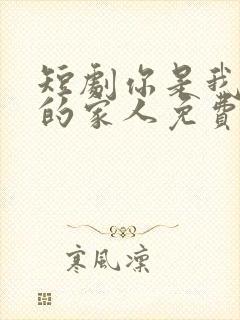 短劇你是我
的家人免費
寒風凜